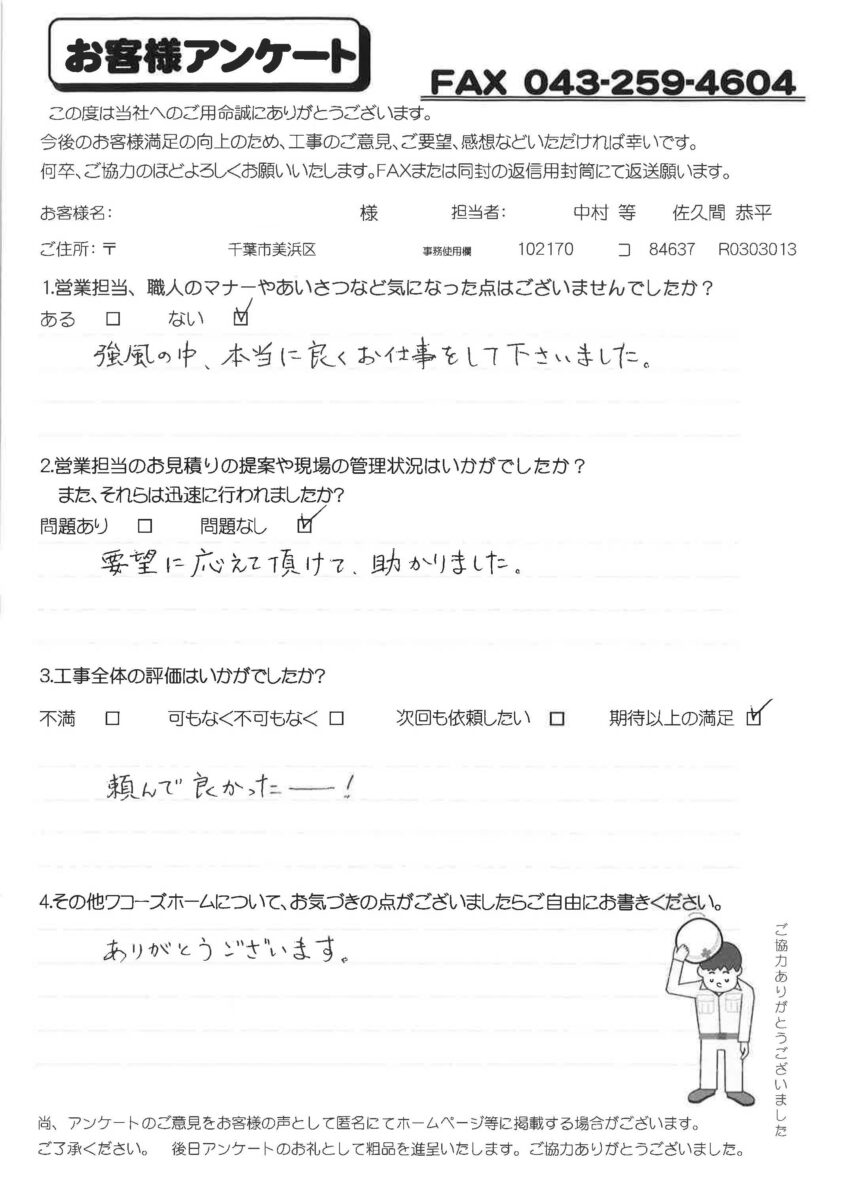 お客様アンケート
FAX 043-259-4604
この度は当社へのご用命誠にありがとうございます。
今後のお客様満足の向上のため、工事のご意見、ご要望、感想などいただければ幸いです。
何卒、ご協力のほどよろしくお願いいたします。FAXまたは同封の返信用封筒にて返送願います。
お客様名: 様 担当者: 中村 等 佐久間 恭平
ご住所:〒 千葉市美浜区 事務使用欄 102170 コ 84637 R0303013
1.営業担当、職人のマナーやあいさつなど気になった点はございませんでしたか?
ある □ ない ☑
強風の中、本当に良くお仕事をして下さいました。
2.営業担当のお見積りの提案や現場の管理状況はいかがでしたか?
また、それらは迅速に行われましたか?
問題あり □ 問題なし ☑
要望に応えて頂けて、助かりました。
3.工事全体の評価はいかがでしたか?
不満 □ 可もなく不可もなく □ 次回も依頼したい □ 期待以上の満足 ☑
頼んで良かったー!
4.その他ワコーズホームについて、お気づきの点がございましたらご自由にお書きください。
ありがとうございます。
ご協力ありがとうございました
尚、アンケートのご意見をお客様の声として匿名にてホームページ等に掲載する場合がございます。
ご了承ください。 後日アンケートのお礼として粗品を進呈いたします。ご協力ありがとうございました。